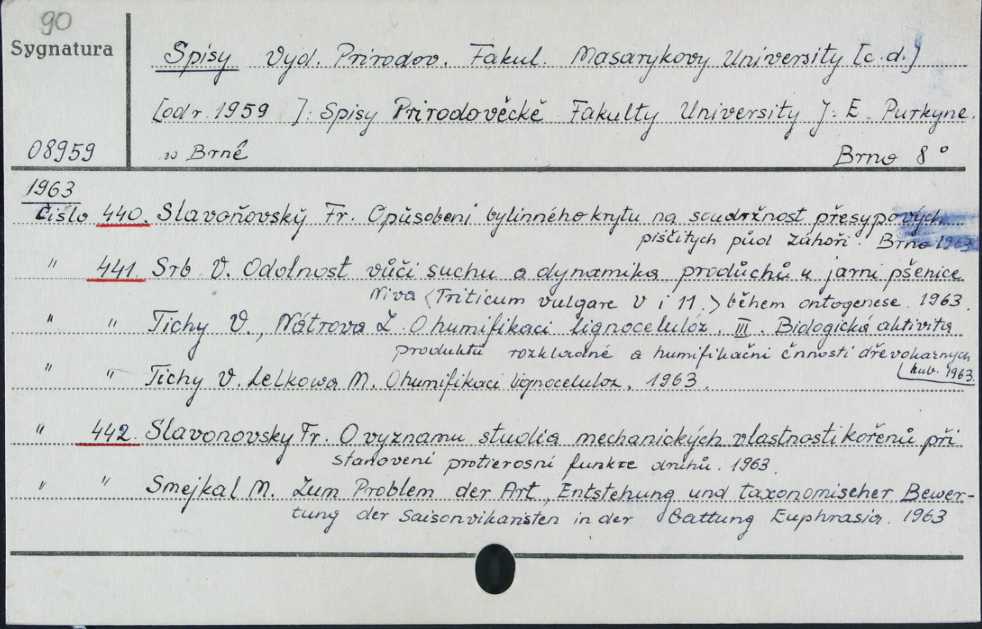 90
Sygnatura
08959
Spisy Vyd. Prirodov. Fakul. Masarykovy University [c.d.]
[od r. 1959 ]: Spisy Prirodověcké Fakulty University J. E. Purkyne.
w Brně Brno 8°
1963
Čislo 440. Slavoňovský Fr. O působeni bylinného krytu na soudržnost přesypových
piščitych půd Záhoři. Brno 1963
" 441. Srb V. Odolnost vůči suchu a dynamika produchů u jarni pšenice
Niva (Triticum vulgare V i 11.) během ontogenese. 1963.
" " Tichy V., Nátrova Z. O humifikaci lignocelulóz. III. Biologická aktivita
produktů rozkladné a humifikačni činnosti dřevokaznych
hub. 1963.
" " Tichy V. Lelkowa M. O humifikaci lignoceluloz. 1963.
" 442. Slavonovsky Fr. O vyznamu studia mechanických vlastnosti kořenů při
stanoveni protierosni funkce druhů. 1963.
" " Smejkal M. Zum Problem der Art, Entstehung und taxonomischer Bewer-
tung der Saisonvikaristen in der Gattung Euphrasia. 1963